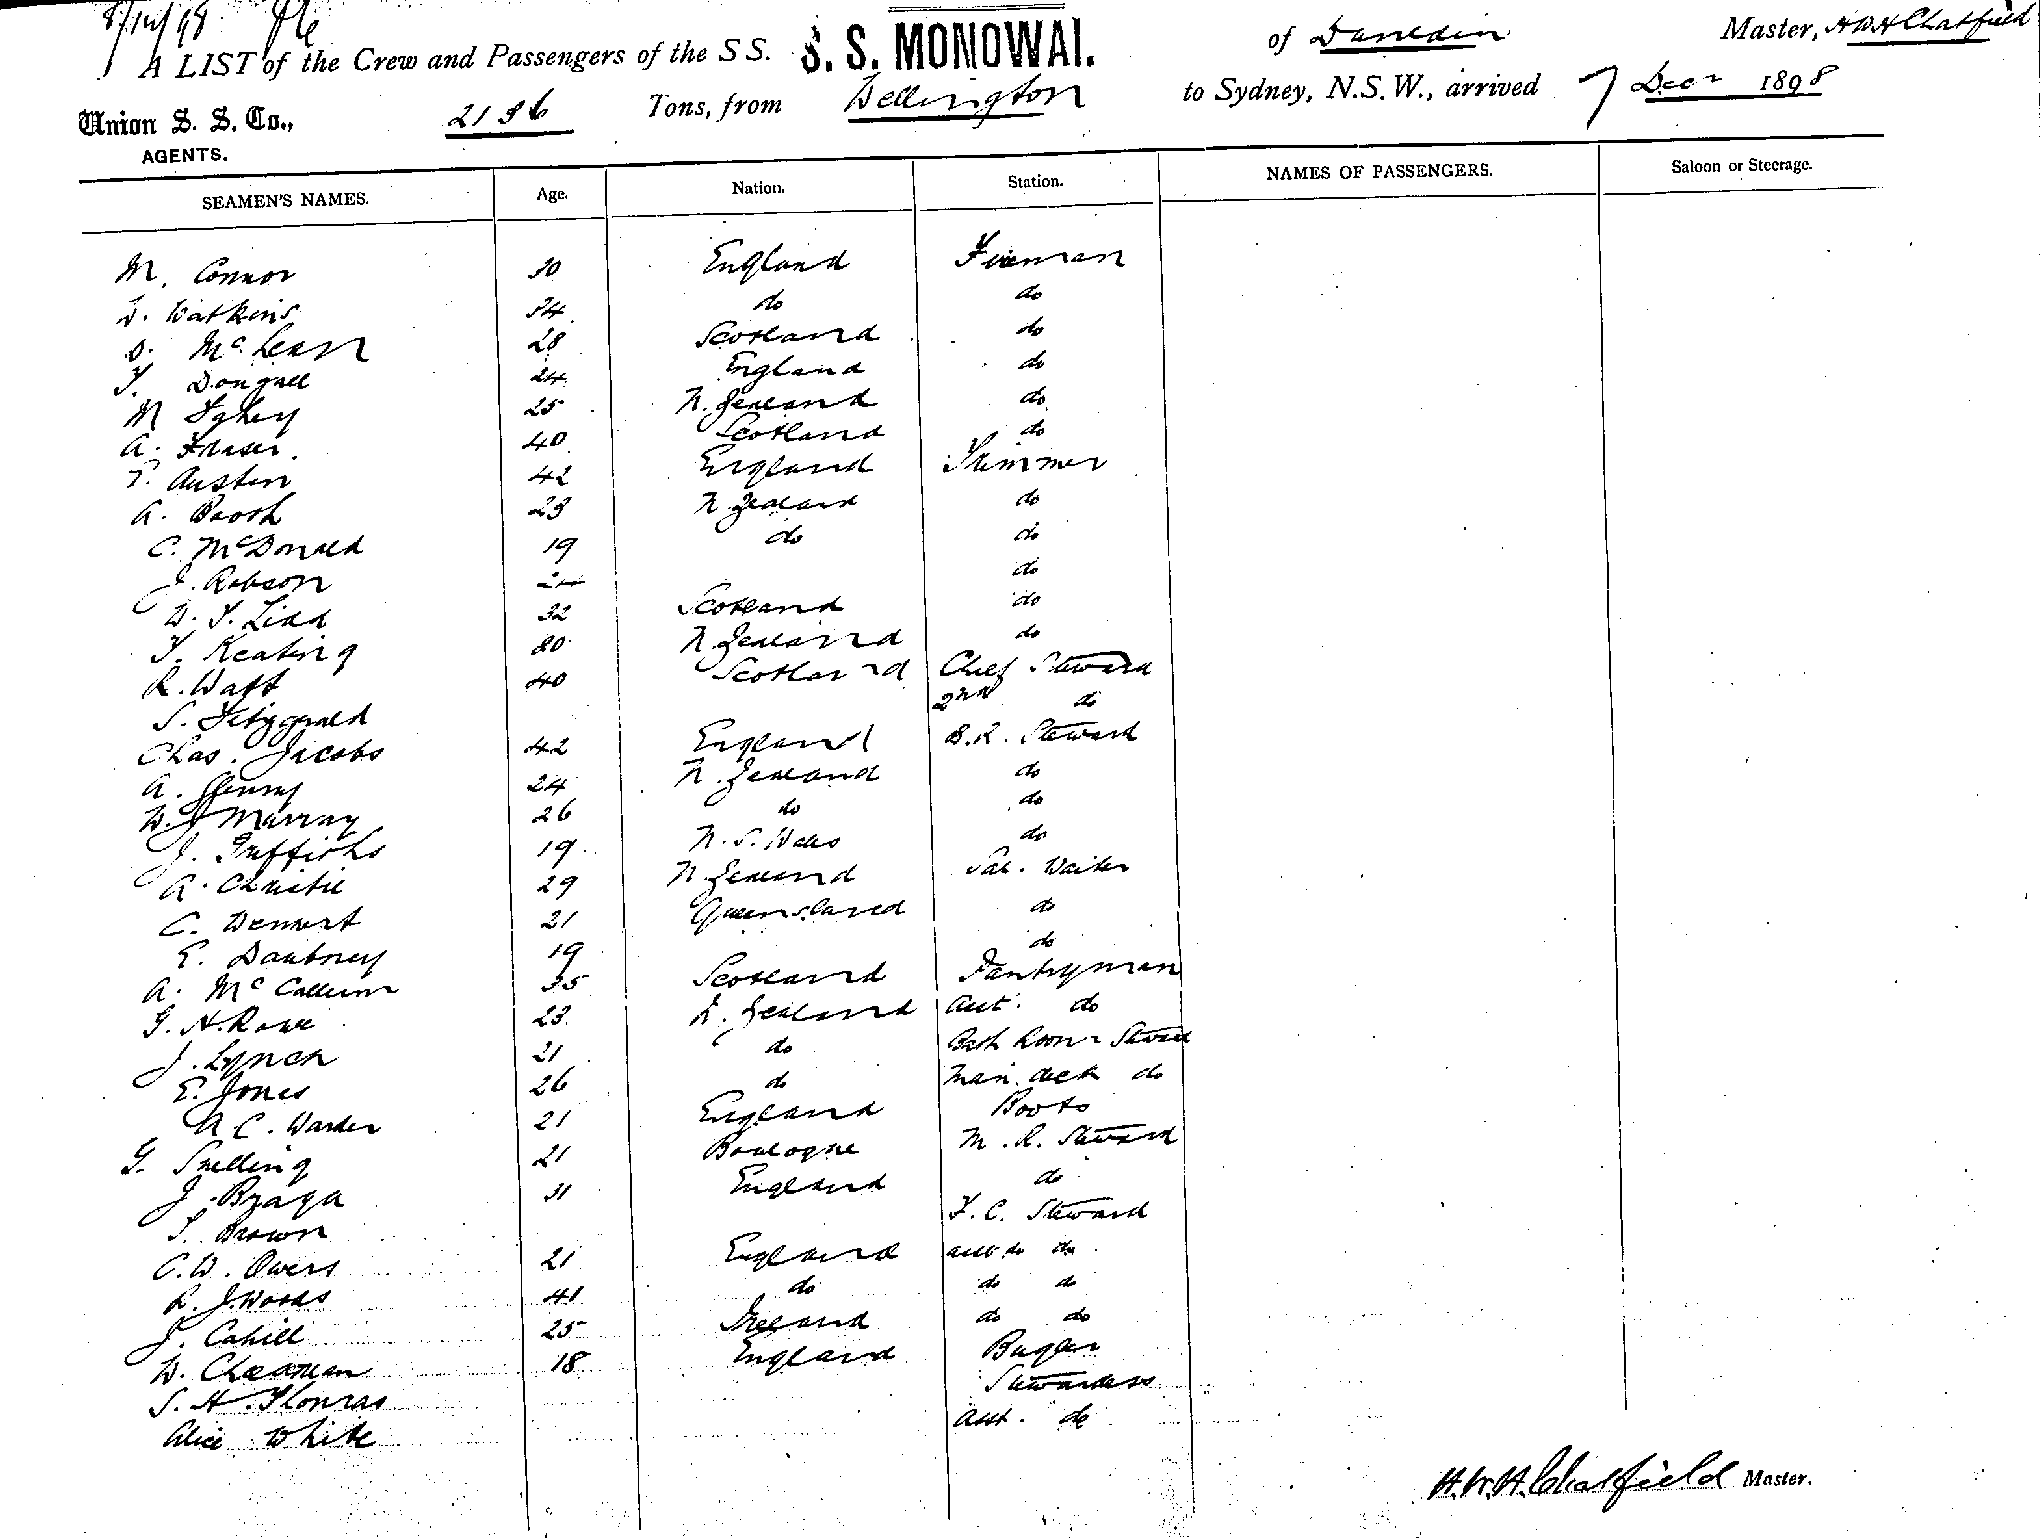 8/12/98
A LIST of the Crew and Passengers of the S S. S. S. MONOWAI. of Dunedin Master, H W H Chatfield
Union S. S. Co., 2136 Tons, from Wellington to Sydney, N.S.W., arrived 7 Decr 1898
AGENTS.
SEAMEN'S NAMES. Age. Nation. Station. NAMES OF PASSENGERS. Saloon or Steerage.
M. Connor 30 England Fireman
Watkins 34 do do
McLean 28 Scotland do
Dougall 24 England do
M 25 N. Zealand do
A. Fraser 40 Scotland do
Austin 42 England Trimmer
A. Booth 23 N Zealand do
C. McDonald 19 do do
J. Robson do
32 Scotland do
Keating N Zealand do
R. Watt 40 Scotland Chief Steward
S. Fitzgerald 2nd do
Chas. Jacobs 42 England B.R. Steward
A. Henry 24 N. Zealand do
W. J Murray 26 do do
J. Griffiths 19 N. S. Wales do
A. Christie 29 N Zealand Sal. Waiter
C. 21 Queensland do
E. Daubney 19 do
A. McCallum 35 Scotland Pantryman
G. H. Rowe 23 N. Zealand Asst. do
J. Lynch 21 do Bath Room Steward
E. Jones 26 do Main deck do
A C. Warder 21 England Boots
G. Snelling 21 Boulogne M. R. Steward
J. Braga 31 England do
Brown F. C. Steward
C. W. Owers 21 England asst do do
R. J. Woods 41 do do do
J. Cahill 25 Ireland do do
W. Chapman 18 England Bugler
S. H. Thomas Stewardess
Alice White asst. do
H. W. H. Chatfield Master.